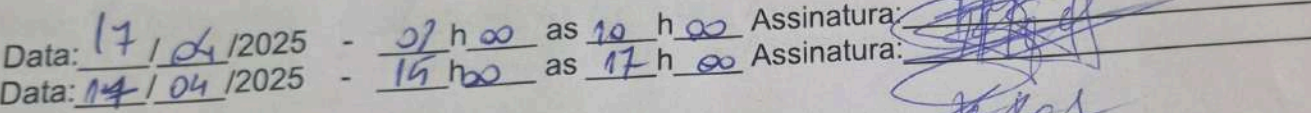 Data: 17 / 04 /2025 - 07 h 00 as 10 h 00 Assinatura:
Data: 17 / 04 /2025 - 15 h00 as 17 h 00 Assinatura: